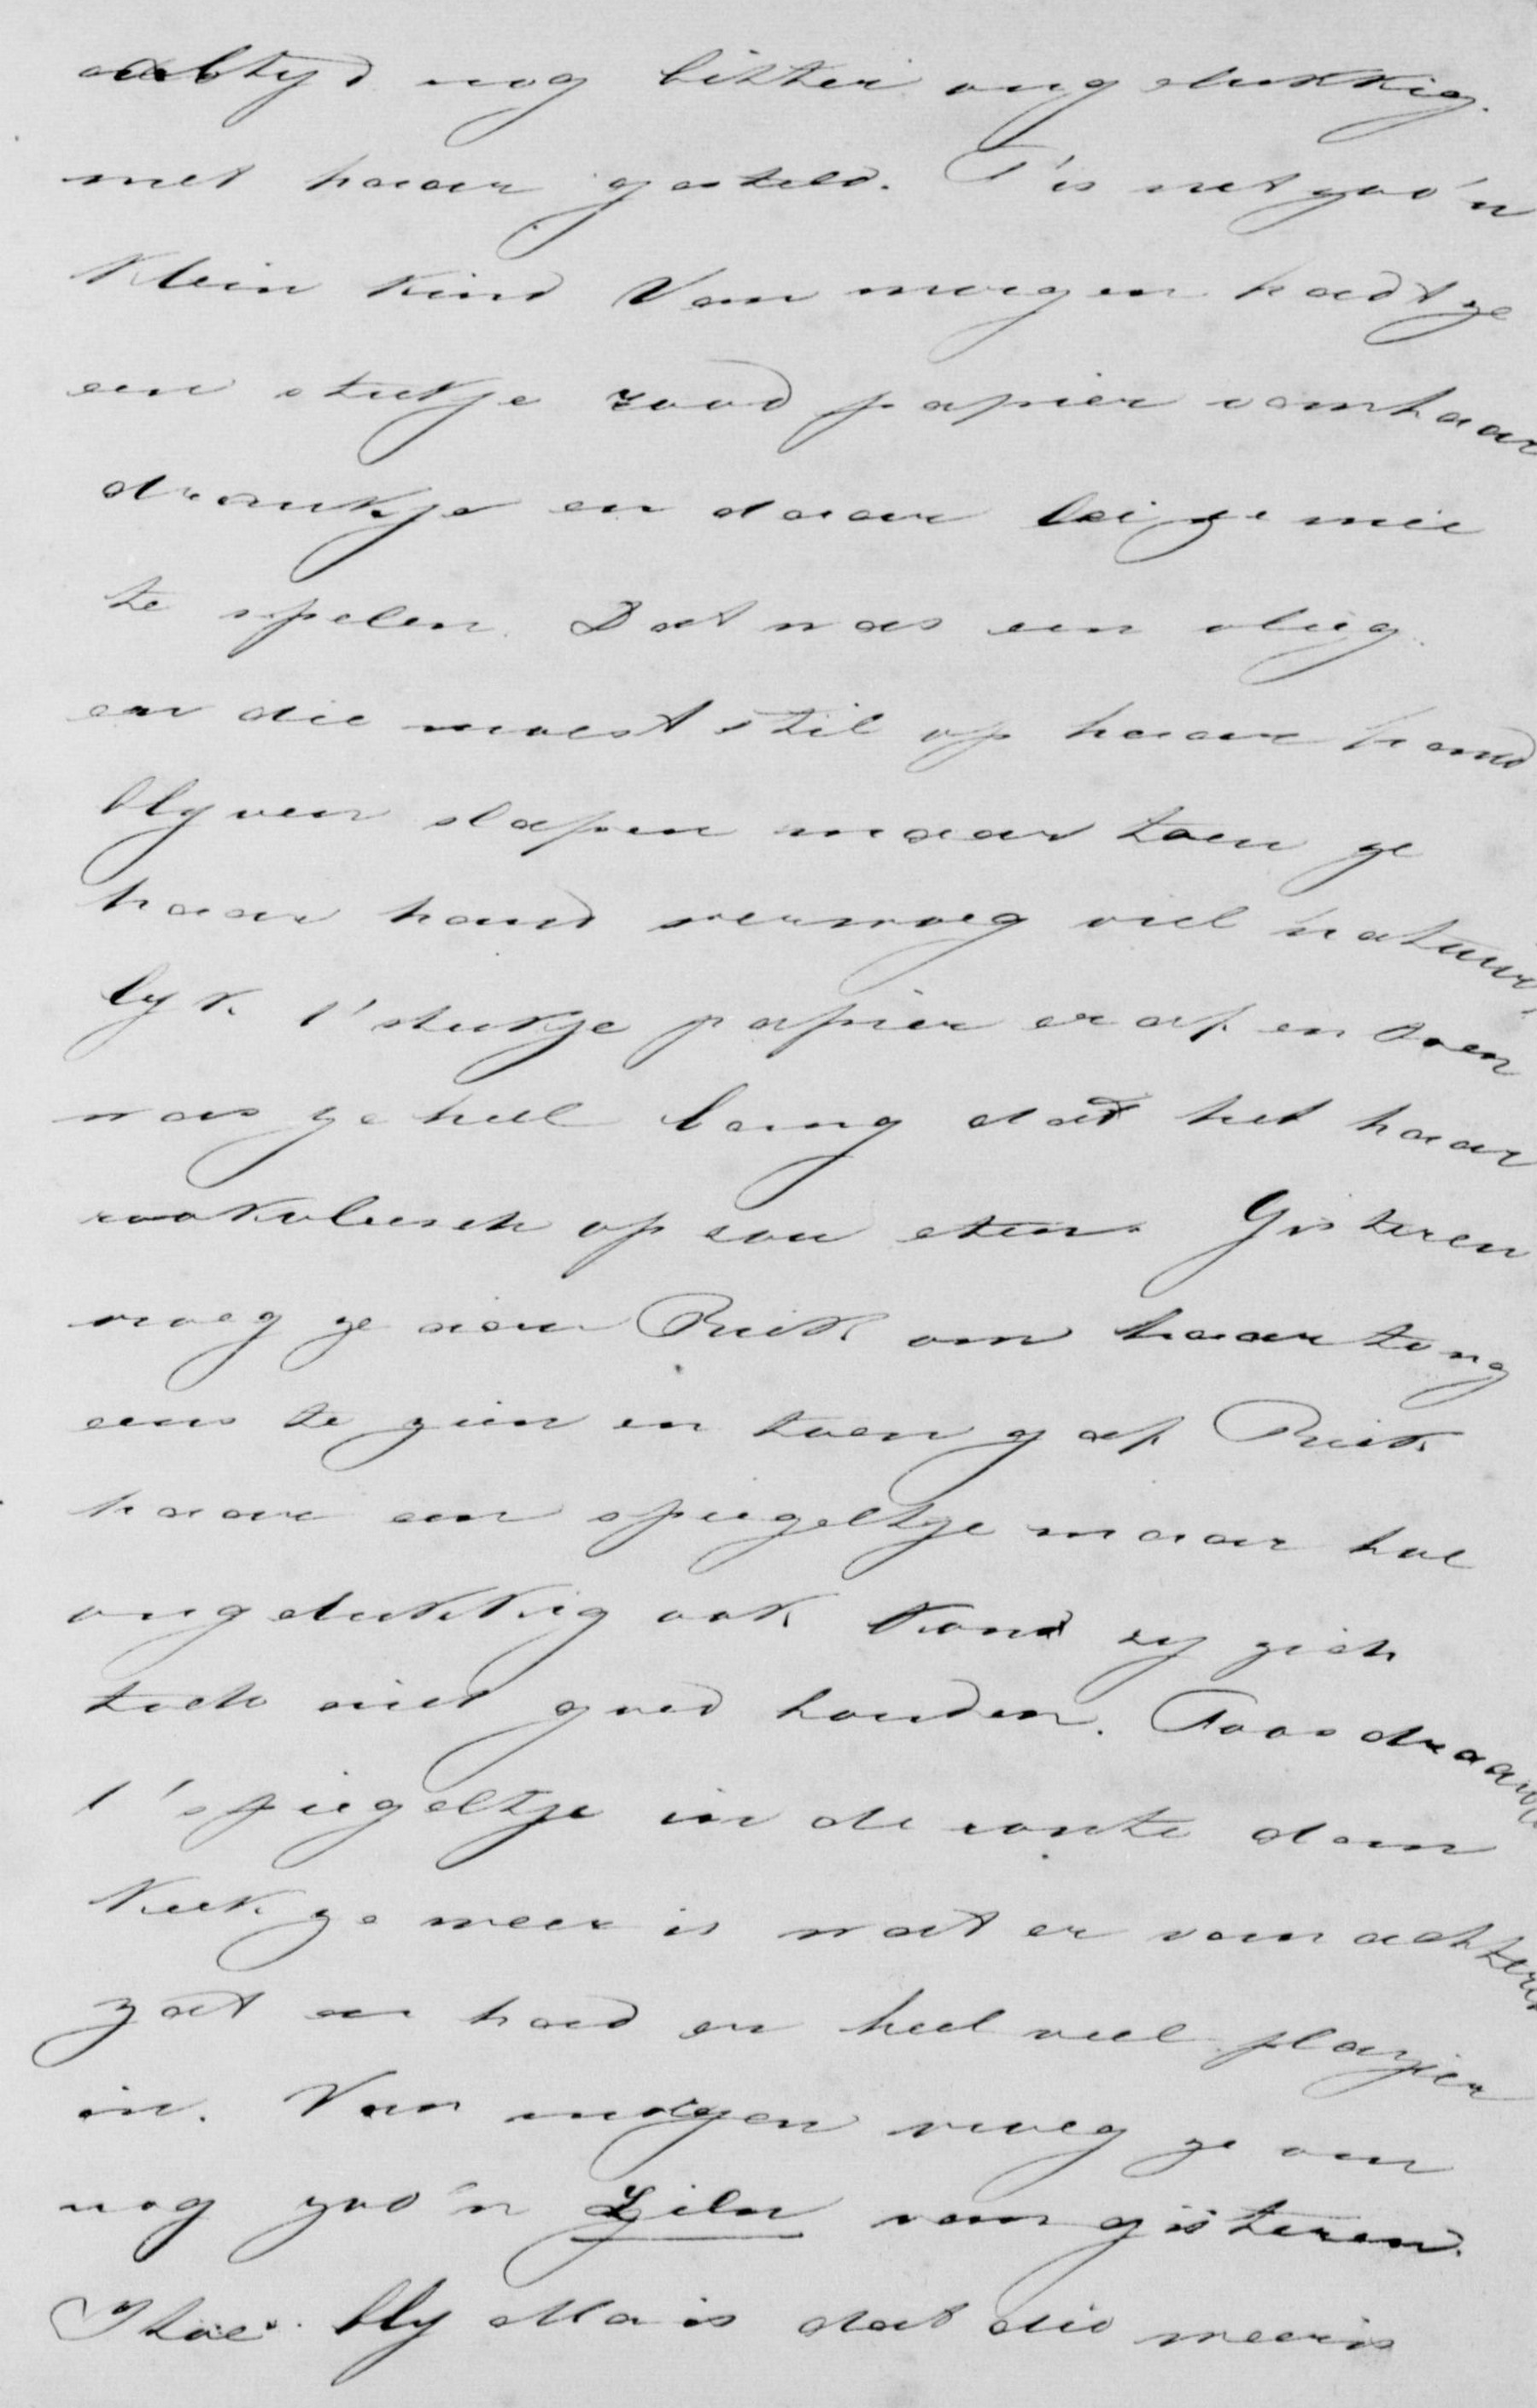 altyd nog bitter ongelukkig.
met haar gesteld. T'is net zoo'n
klein kind Van morgen hadt ze
een stukje rood papier van haar
drankje en daar lei ze mee
te spelen. Dat was een vlieg
en die moest stil op haar hand
blyven slapen maar toen ze
haar hand verwoeg viel natuur
lyk t'stukje papier er af en toen
was ze heel bang dat het haar
rookvleesch op zou eten. Gisteren
vroeg ze aan Riek om haar tong
eens te zien en toen gaf Riek
haar een spiegeltje maar hoe
ongelukkig ook kond zy zich
toch niet goed houden. Toos draaide
t'spiegeltje in de ronte dan
keek ze weer is wat er van achteren
zat en had er heel veel plazier
in. Van morgen vroeg ze om
nog zoo'n van gisteren.
Hoe bly Ma is dat die weer is